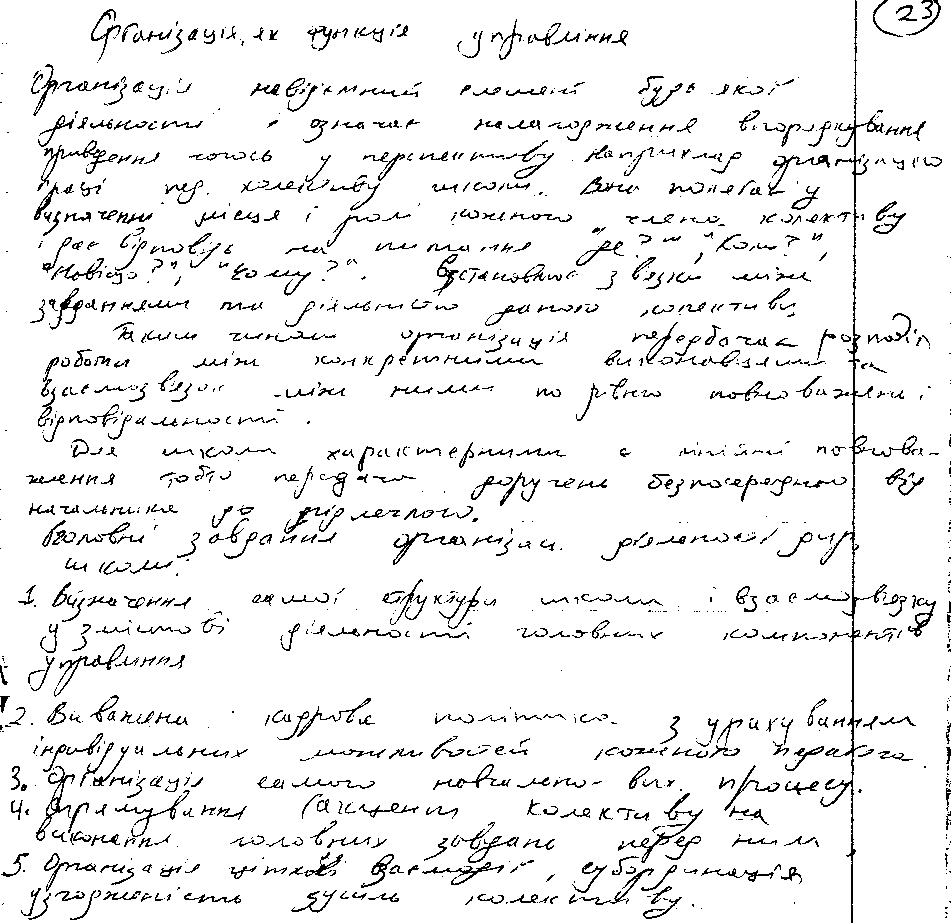 23
Організація, як функція управління
Організація невід'ємний елемент будь якої
діяльності і означає налагодження впорядкування
приведення чогось у перспективу наприклад організацію
праці пед. колективу школи. Вона полягає у
визначенні місця і ролі кожного члена колективу
і дає відповідь на питання "де?", "Коли?",
"Навіщо?", "Кому?". Встановлює звязки між
завданнями та діяльністю даного колективу.
Таким чином організація передбачає розподіл
роботи між конкретними виконавцями та
взаємозвязок між ними по рівню повноважень і
відповідальності.
Для школи характерними є лінійні повнова-
ження тобто передача доручень безпосередньо від
начальника до підлеглого.
Головні завдання організац. діяльності дир.
школи:
1. Визначення самої структури школи і взаємозвязку
у змістові діяльності головних компонентів
управління
2. Виважена кадрова політика з урахуванням
індивідуальних можливостей кожного педагога
3. Організація самого навчально-вих. процесу.
4. Спрямування колективу на
виконання головних завдань перед ним
5. Організація чіткої взаємодії, субординація
узгодженість зусиль колективу.